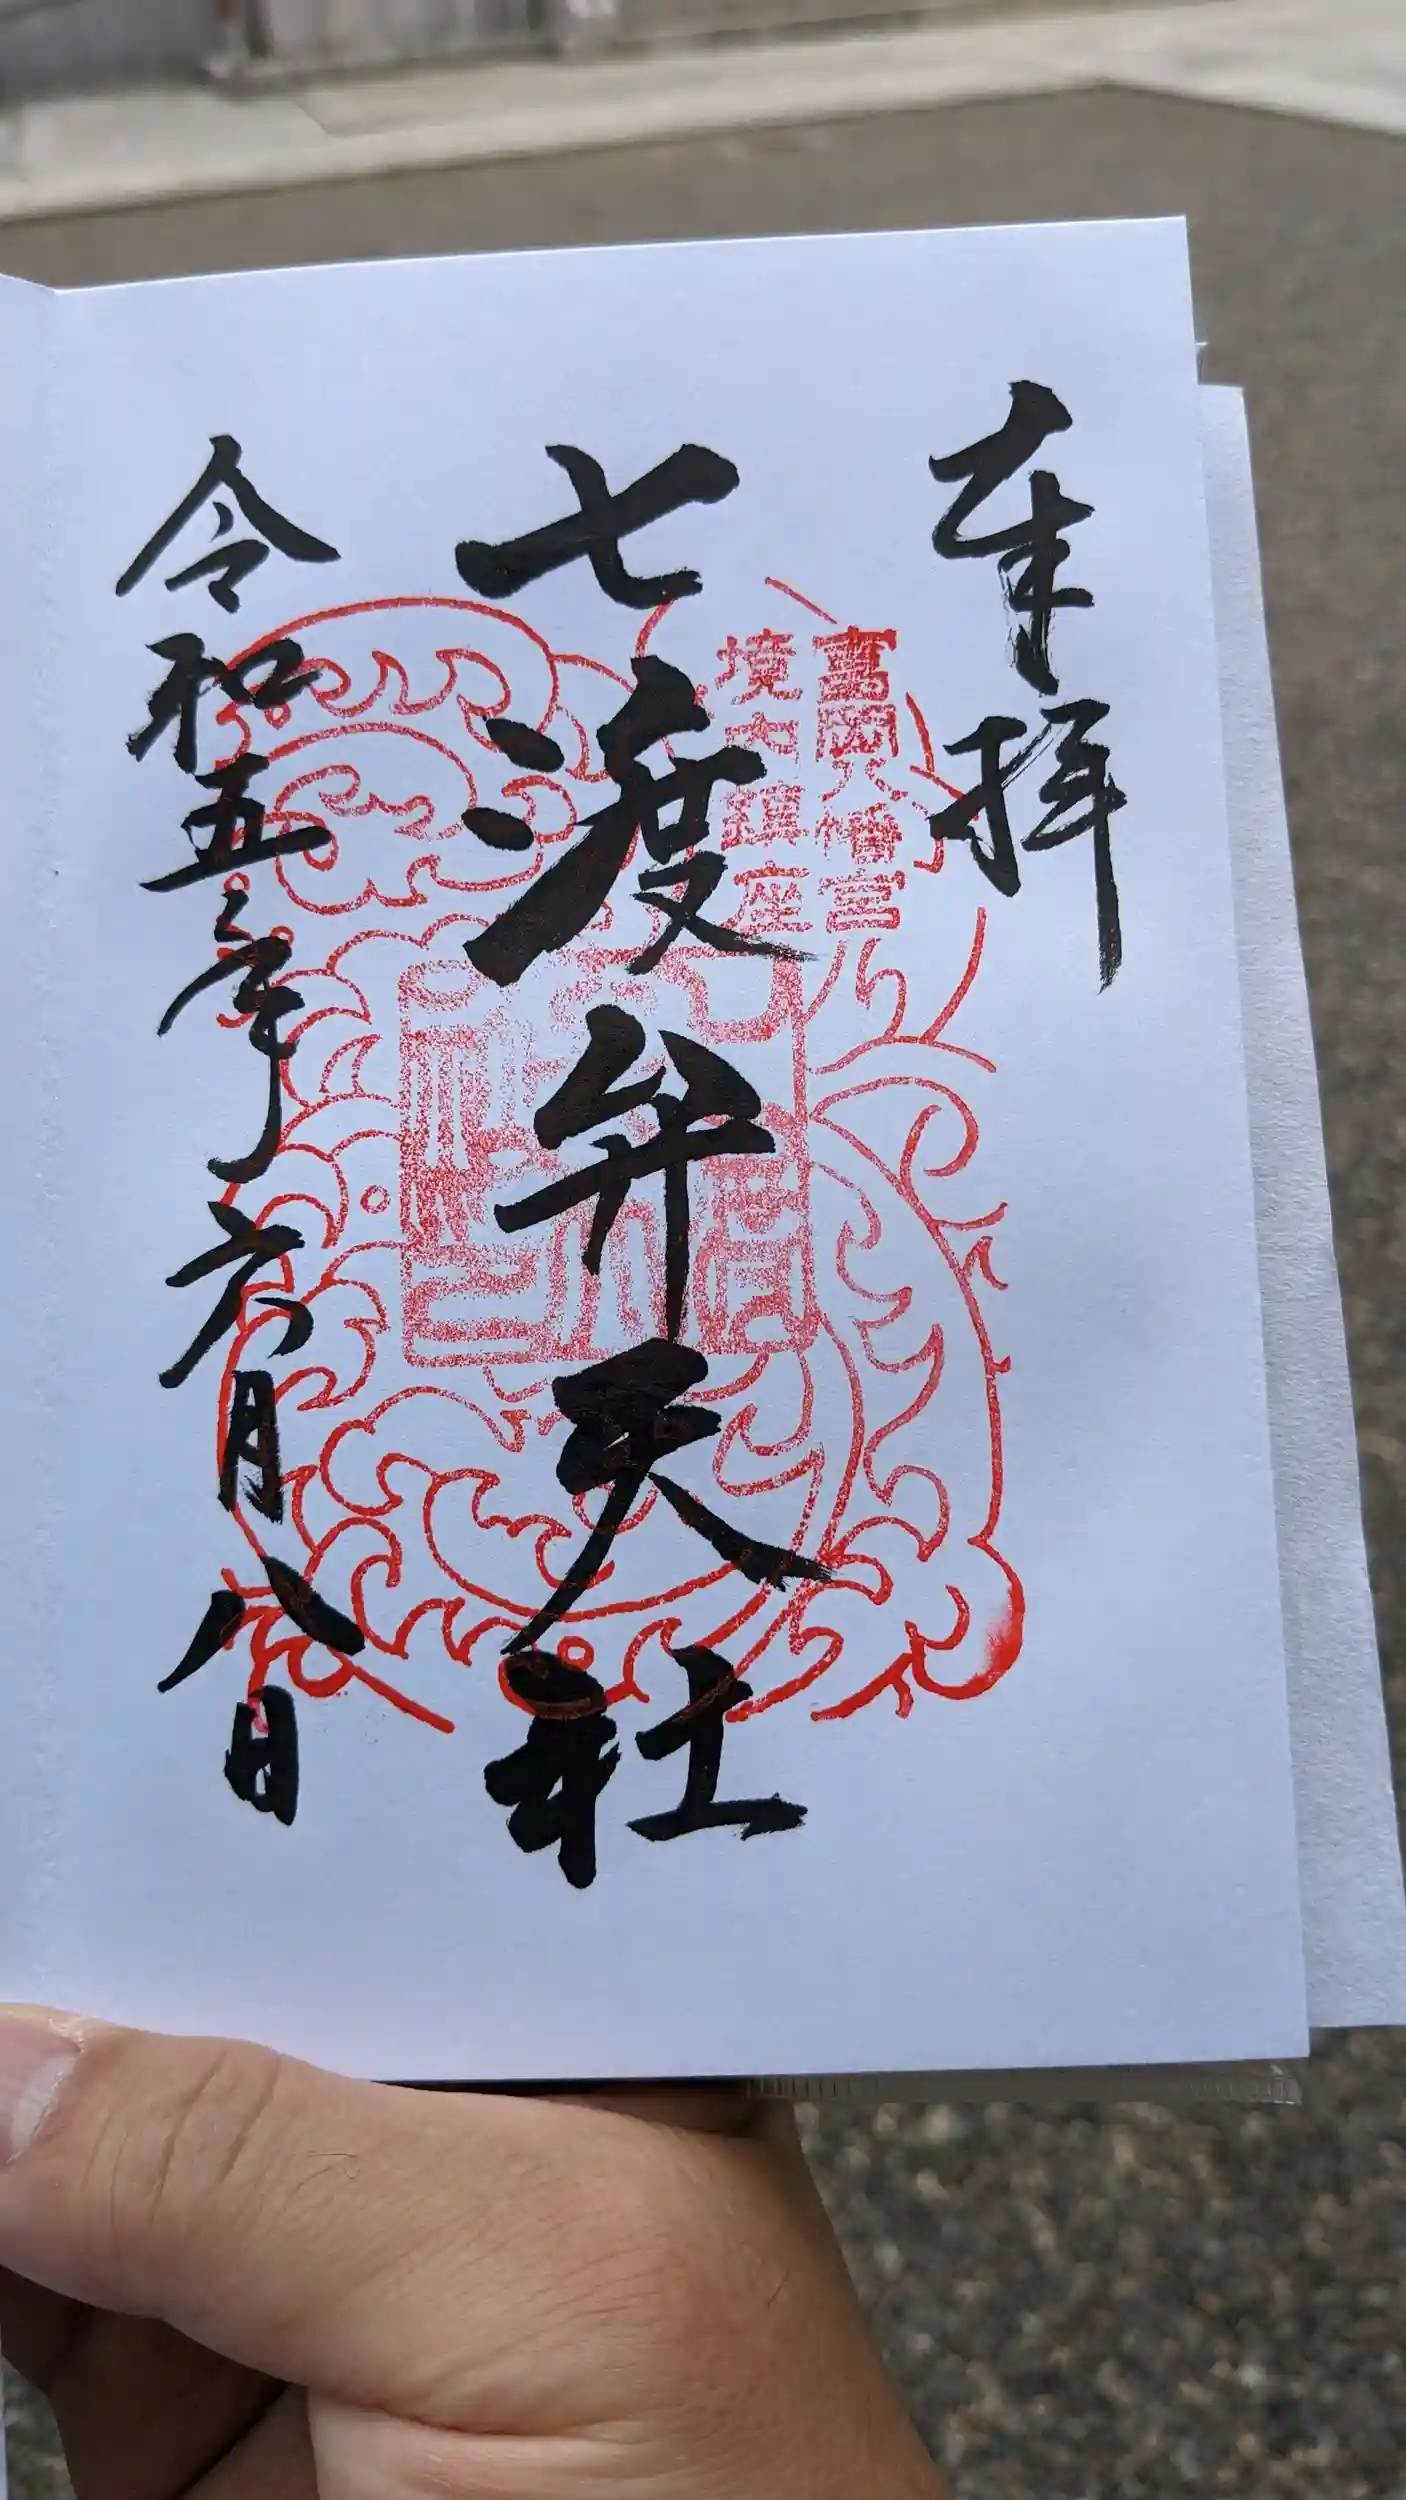 奉拝
富岡八幡宮
境内鎮座
七渡弁天社
令和五年六月八日